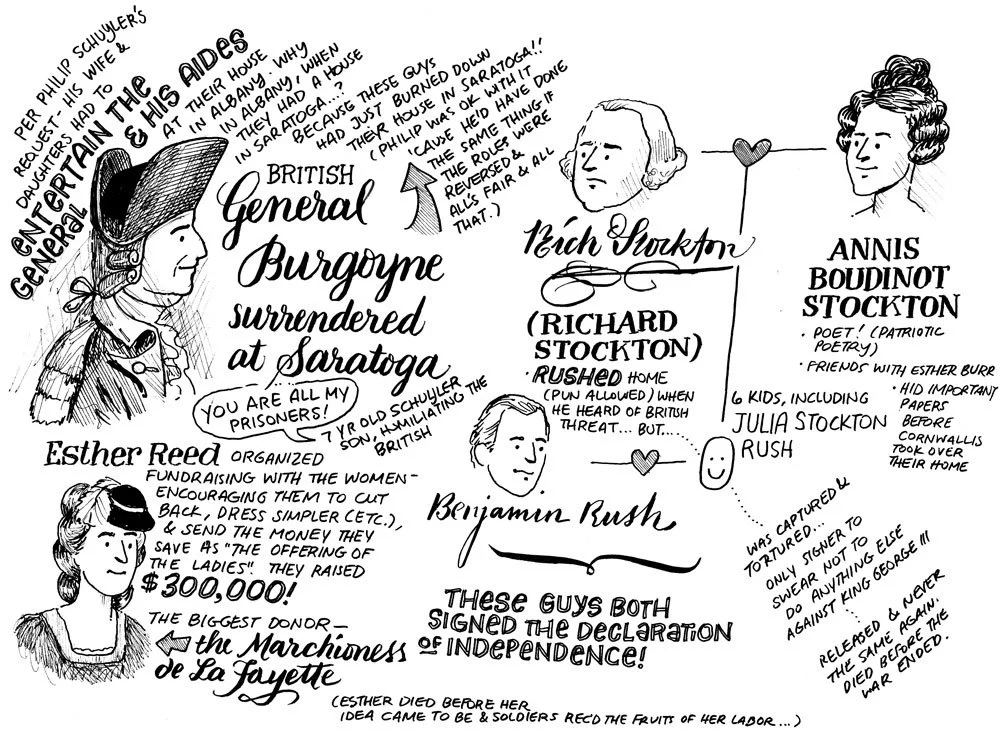 PER PHILIP SCHUYLER'S
REQUEST - HIS WIFE &
DAUGHTERS HAD TO
ENTERTAIN THE
GENERAL & HIS AIDES
AT THEIR HOUSE
IN ALBANY. WHY
IN ALBANY, WHEN
THEY HAD A HOUSE
IN SARATOGA...?
BECAUSE THESE GUYS
HAD JUST BURNED DOWN
THEIR HOUSE IN SARATOGA!!
(PHILIP WAS OK WITH IT
'CAUSE HE'D HAVE DONE
THE SAME THING IF
THE ROLES WERE
REVERSED &
ALL'S FAIR & ALL
THAT.)
BRITISH
General
Burgoyne
surrendered
at Saratoga
YOU ARE ALL MY
PRISONERS!
7 YR OLD SCHUYLER
SON, HUMILIATING THE
BRITISH
Esther Reed ORGANIZED
FUNDRAISING WITH THE WOMEN-
ENCOURAGING THEM TO CUT
BACK, DRESS SIMPLER (ETC.),
& SEND THE MONEY THEY
SAVE AS "THE OFFERING OF
THE LADIES". THEY RAISED
$300,000!
THE BIGGEST DONOR—
the Marchioness
de La Fayette
(ESTHER DIED BEFORE HER
IDEA CAME TO BE & SOLDIERS REC'D THE FRUITS OF HER LABOR...)
Rich Stockton
(RICHARD
STOCKTON)
• RUSHED HOME
(PUN ALLOWED) WHEN
HE HEARD OF BRITISH
THREAT... BUT...
WAS CAPTURED &
TORTURED...
ONLY SIGNER TO
SWEAR NOT TO
DO ANYTHING ELSE
AGAINST KING GEORGE III
RELEASED & NEVER
THE SAME AGAIN.
DIED BEFORE THE
WAR ENDED.
ANNIS
BOUDINOT
STOCKTON
• POET! (PATRIOTIC
POETRY)
• FRIENDS WITH ESTHER BURR
• HID IMPORTANT
PAPERS
BEFORE
CORNWALLIS
TOOK OVER
THEIR HOME
6 KIDS, INCLUDING
JULIA STOCKTON
RUSH
Benjamin Rush
THESE GUYS BOTH
SIGNED THE DECLARATION
OF INDEPENDENCE!